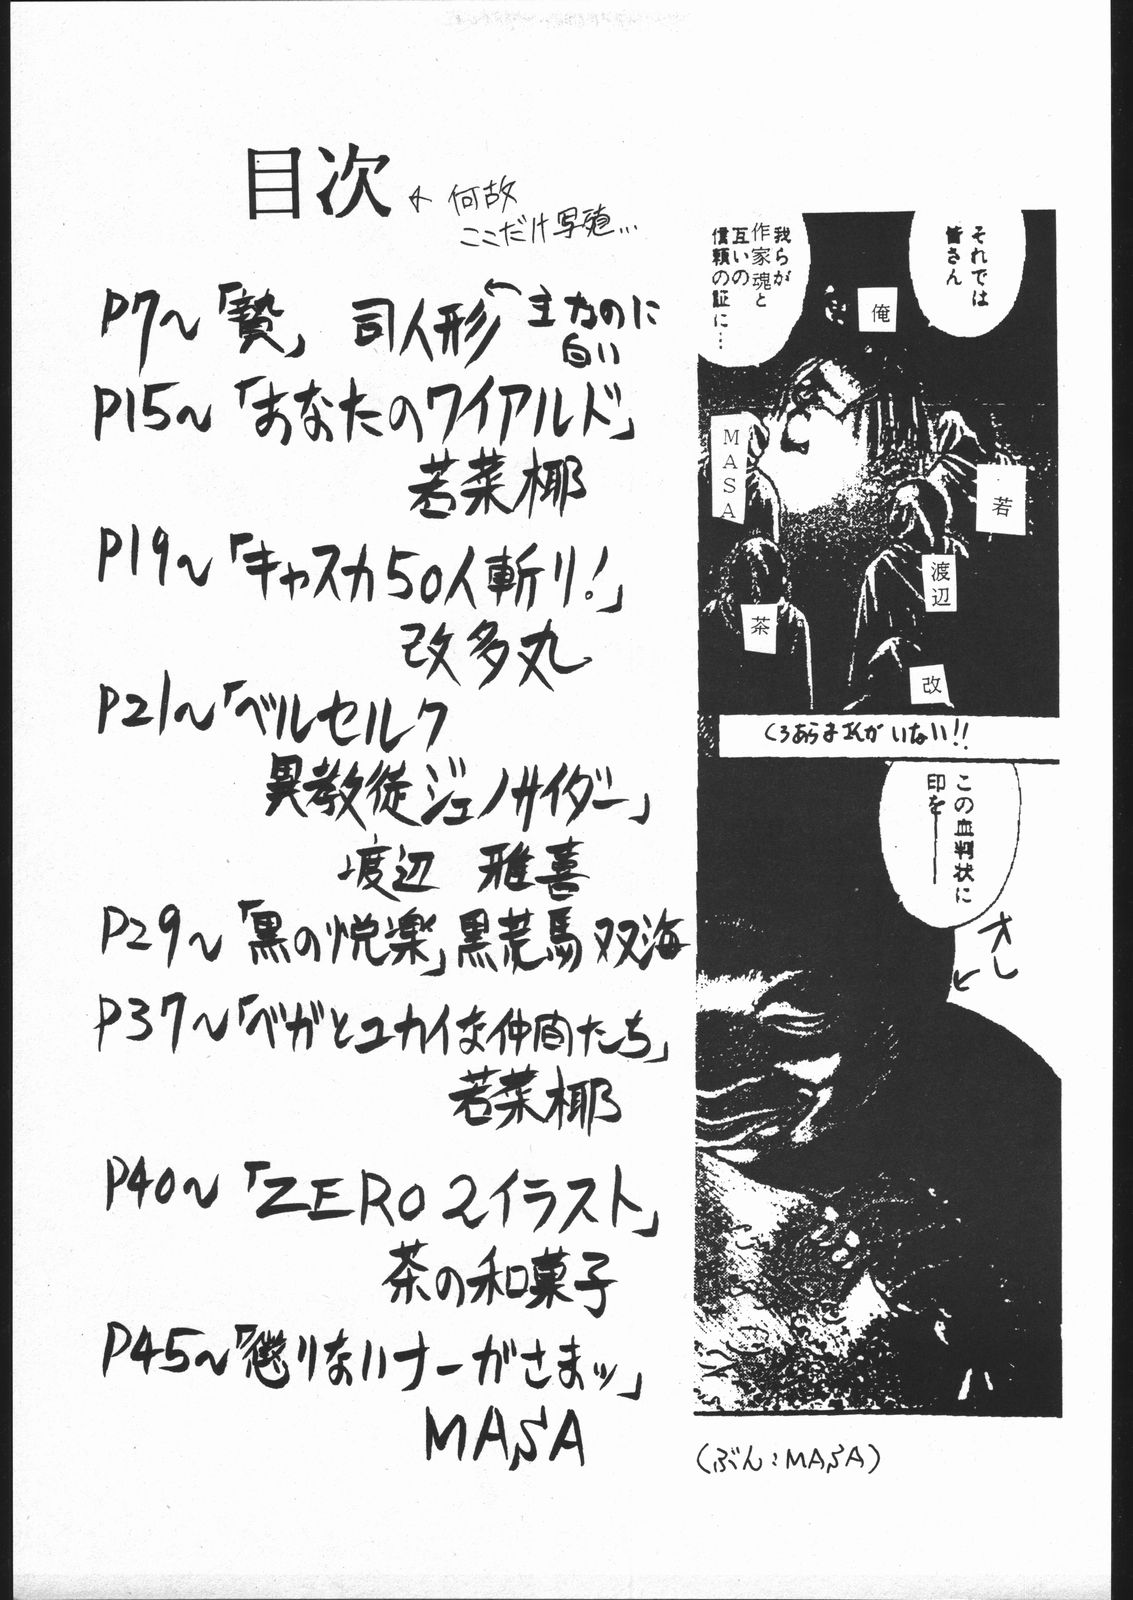 目次
何故
ここだけ写殖…
P7〜「贄」 司人形
主なのに
白い
P15〜「あなたのワイアルド」
若菜椰
P19〜「キャスカ50人斬り!」
改多丸
P21〜「ベルセルク
異教徒ジェノサイダー」
渡辺 雅喜
P29〜「黒の悦楽」黒荒馬 双海
P37〜「ベガとユカイな仲間たち」
若菜椰
P40〜「ZERO2イラスト」
茶の和菓子
P45〜「懲りないナーガさまッ」
MASA
それでは
皆さん
我らが
作家魂と
互いの
信頼の証に…
俺
MASA
若
渡辺
茶
改
くろあらまさんがいない!!
この血判状に
印を――
オレ
(ぶん:MASA)